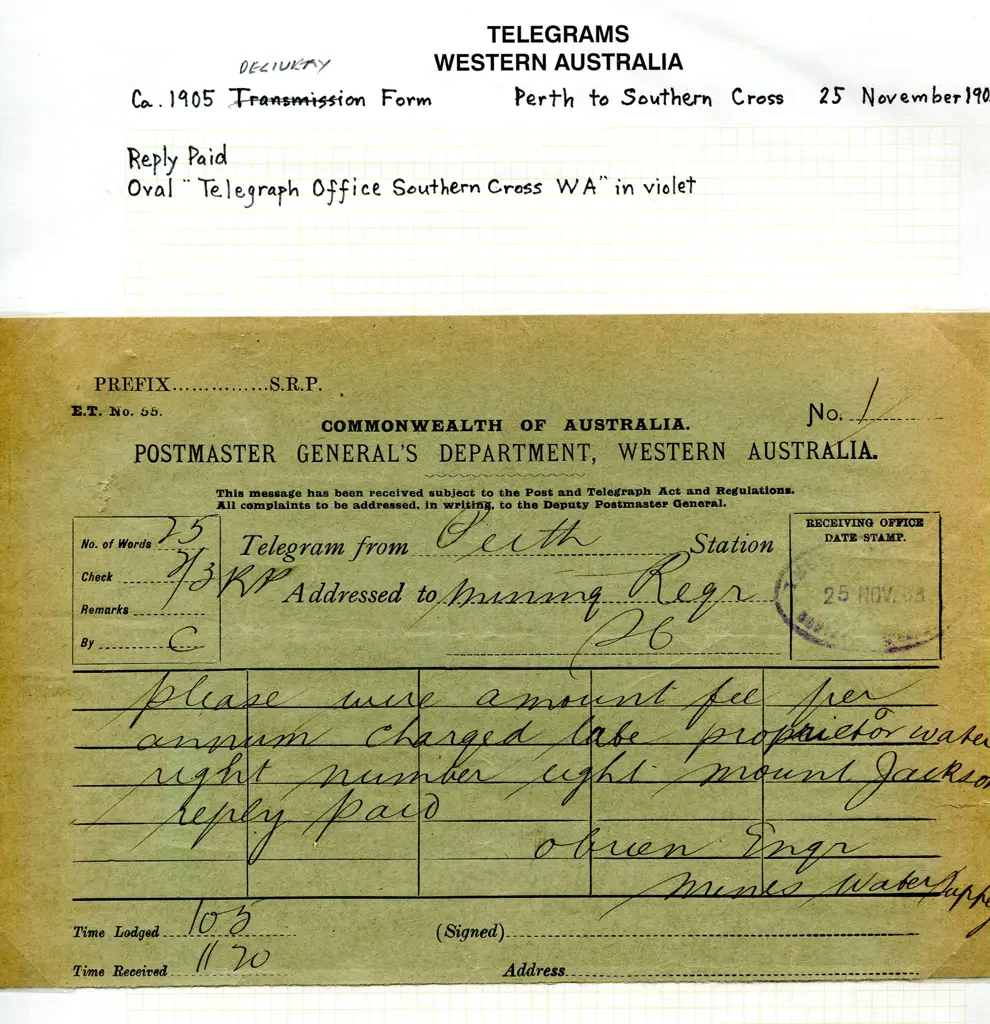 TELEGRAMS
WESTERN AUSTRALIA
DELIVERY
Ca. 1905 Transmission Form Perth to Southern Cross 25 November 190
Reply Paid
Oval "Telegraph Office Southern Cross WA" in violet
PREFIX...............S.R.P.
E.T. No. 55.
No. 1
COMMONWEALTH OF AUSTRALIA.
POSTMASTER GENERAL'S DEPARTMENT, WESTERN AUSTRALIA.
This message has been received subject to the Post and Telegraph Act and Regulations.
All complaints to be addressed, in writing, to the Deputy Postmaster General.
No. of Words 25
Check 2/3 RP
Remarks
By C
Telegram from Perth Station
Addressed to Mining Regr
RECEIVING OFFICE
DATE STAMP.
25 NOV.
please wire amount fee per
annum charged labe proprietor water
right number eight mount Jackson
reply paid
obrien Engr
Mines Water Supply
Time Lodged 105
Time Received 11 20
(Signed)
Address